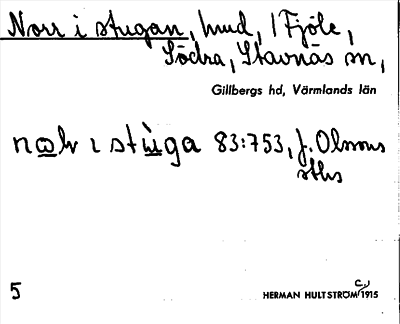 Norr i stugan, hmd, 1 Fjöle,
Södra, Stavnäs sn,
Gillbergs hd, Värmlands län
83:753, J. Olssons
sths
5
HERMAN HULTSTRÖM c. 1915